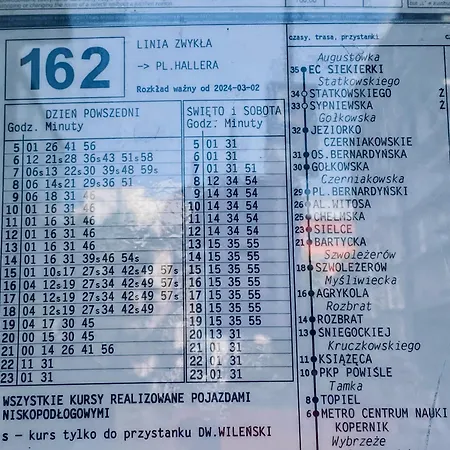 162
LINIA ZWYKŁA
-> PL.HALLERA
Rozkład ważny od 2024-03-02
DZIEŃ POWSZEDNI
Godz. Minuty
5 01 26 41 56
6 12 21s 28 36s 43 51s 58
7 06s 13 22s 30 39s 48 59s
8 06 14s 21 29s 36 51
9 06 18 31 46
10 01 16 31 46
11 01 16 31 46
12 01 16 31 46
13 01 16 31 46
14 01 16 31 39s 46 54s
15 01 10s 17 27s 34 42s 49 57s
16 04 12s 19 27s 34 42s 49 57s
17 04 12s 19 27s 34 42s 49 57s
18 04 12s 19 27s 34 42s 49
19 04 17 30 45
20 00 15 30 45
21 00 14 26 41 56
22 11 31
23 01 31
ŚWIĘTO i SOBOTA
Godz. Minuty
5 01 31
6 01 31
7 01 31 51
8 12 34 54
9 14 34 54
10 14 34 54
11 14 34 54
12 14 34 54
13 15 35 55
14 15 35 55
15 15 35 55
16 15 35 55
17 15 35 55
18 15 35 55
19 15 35 55
20 13 31
21 01 31
22 01 31
23 01 31
WSZYSTKIE KURSY REALIZOWANE POJAZDAMI
NISKOPODŁOGOWYMI
s - kurs tylko do przystanku DW.WILEŃSKI
czasy, trasa, przystanki
Augustówka
35 EC SIEKIERKI
Statkowskiego
34 STATKOWSKIEGO 2
33 SYPNIEWSKA 2
Gołkowska
32 JEZIORKO
CZERNIAKOWSKIE
31 OS.BERNARDYŃSKA
30 GOŁKOWSKA
Czerniakowska
29 PL.BERNARDYŃSKI
26 AL.WITOSA
25 CHEŁMSKA
23 SIELCE
21 BARTYCKA
Szwoleżerów
18 SZWOLEŻERÓW
Myśliwiecka
16 AGRYKOLA
Rozbrat
14 ROZBRAT
13 ŚNIEGOCKIEJ
Kruczkowskiego
11 KSIĄŻĘCA
10 PKP POWIŚLE
Tamka
8 TOPIEL
6 METRO CENTRUM NAUKI
KOPERNIK
Wybrzeże